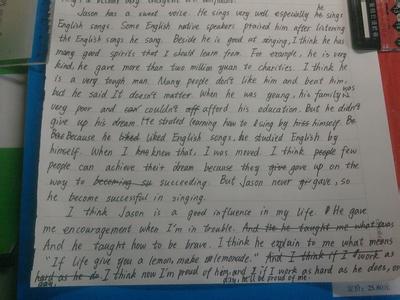 he
Jason has a sweet voice. He sings very well especially he sings
English songs. Some English native speakers praised him after listening
the English songs he sang. Beside he is good at singing, I think he has
many good spirits that I should learn from. For example, he is very
kind. he gave more than two million yuan to charities. I think he
is a very tough man. Many people don't like him and beat him.
but he said It doesn't matter. When he was young, his family was
very poor and can couldn't aff afford his education. But he didn't
give up his dream. He strated learning how to sing by hiss himself. Be
Because he liked liked English songs. he studied English by
himself. When I kne knew that, I was moved. I think people few
people can achieve their dream because they give gave up on the
way to becoming su succeeding. But Jason never gi gave, so
he become successful in singing.
I think Jason is a good influence in my life. He gave
me encouragement when I'm in trouble. And He he taught me what
And he taught how to be brave. I think he explain to me what means
"If life give you a lemon, make lemonade." And I think if I work as
hard as he do I think now I'm proud of him, and if I work as hard as he does, on
day, he'll be proud of me.
定价: 25.80元